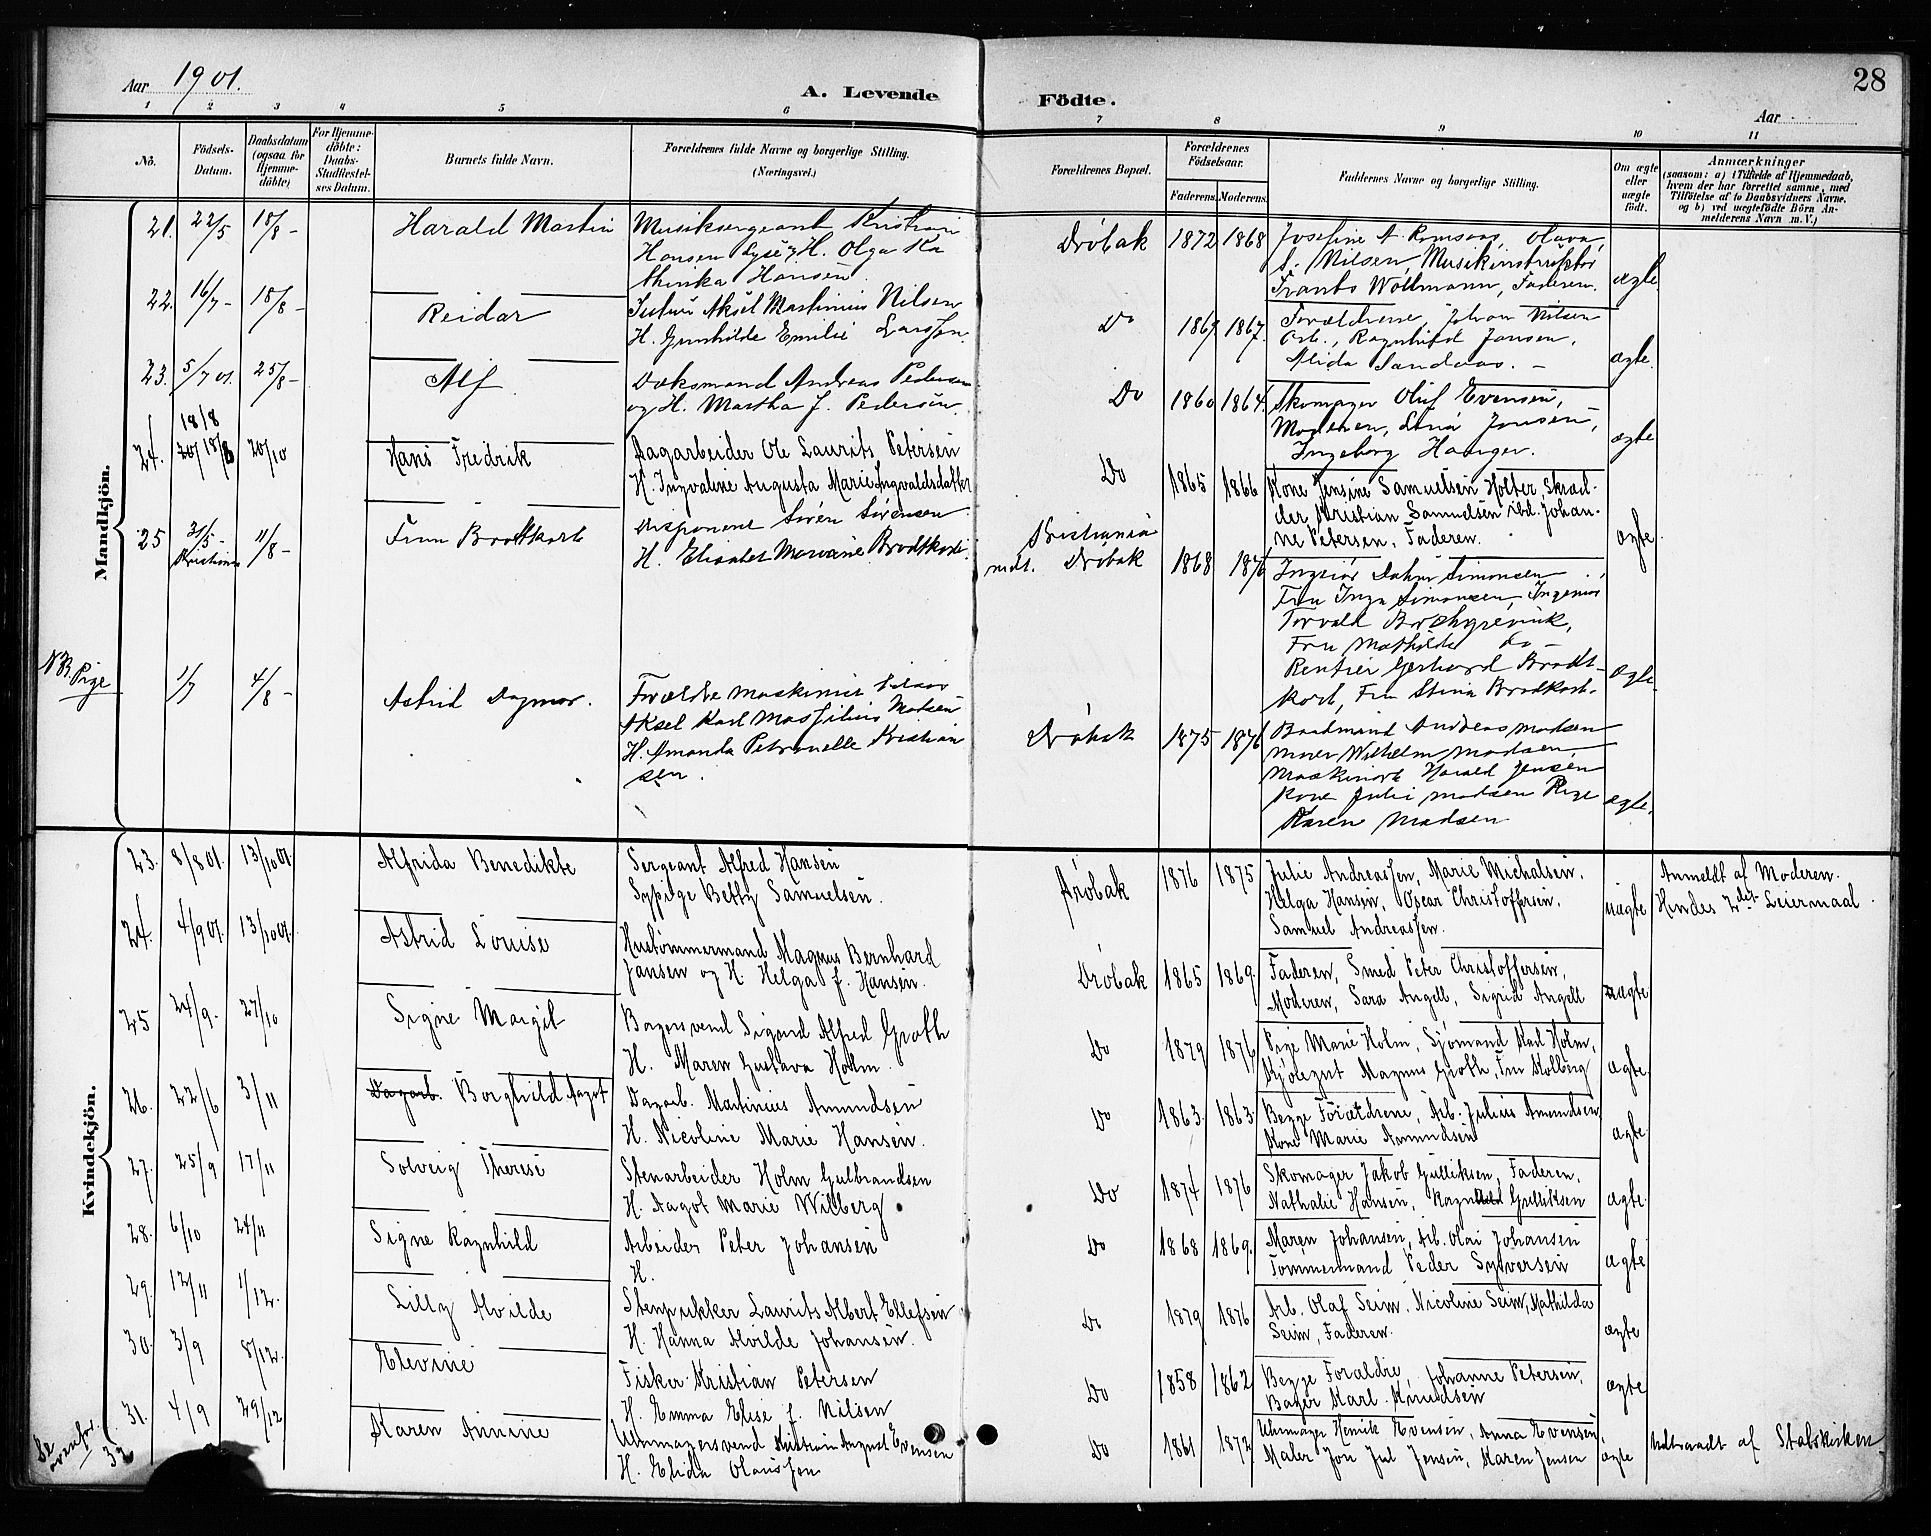 28
Aar 1901.
A. Levende
Födte.
Aar
1 2 3 4 5 6 7 8 9 10 11
No.
Födsels-Datum.
Daabsdatum (ogsaa for Hjemme-döbte)
For Hjemme-döbte: Daabs-Stadfæstelses Datum.
Barnets fulde Navn.
Forældrenes fulde Navne og borgerlige Stilling. (Næringsvei.)
Forældrenes Bopæl.
Forældrenes Födselsaar.
Faderens. Moderens.
Faddernes Navne og borgerlige Stilling.
Om ægte eller uægte födt.
Anmærkninger
(saasom: a) i Tilfælde af Hjemmedaab, hvem der har forrettet samme, med Tilföielse af to Daabsvidners Navne. og b) ved uægtefödte Börn Anmelderens Navn m. V.)
Mandkjön.
21. 22/5 18/8 – Harald Martin Musiksergeant Kristian Dröbak 1872 1868
Hansen H. Olga Ka
thinka Hansen
Nilsen, Musikinstruktör
Frants Woltmann, Faderen. ægte
22. 16/7 – 18/8 – Reidar Aksel Martinius Nilsen Do 1869 1867.
H. Gunhilde Emilie Larssen
Forældrene, Johan Nilsen
Arb., Ragnhild Jansen,
Alida Sandaas. – ægte
23. 5/7 01. 25/8 – Alf Andreas Pedersen Do 1860 1864.
og H. Martha J. Pedersen.
Skomager Oluf Evensen,
Moderen, Lina Jonsen,
Ingeborg Haanger. ægte
24. 18/8 20/10 Hans Fredrik Dagarbeider Ole Laurits Petersen Do 1865 1866
H. Ingvaline Augusta Marie Ingvaldsdatter
Kone Jensine Samuelsen Holter, Skræd-
der Kristian Samuelsen ibd. Johan-
ne Petersen, Faderen. ægte
25 31/5 – Kristiania 11/8 – Finn Brodtkorb Disponent Sören Sörensen Kristiania
H. Elisabet Marianne Brodtkorb. mdt. Dröbak 1868 1876
Simonsen
Fru Inga Simonsen, Ingeniör
Torvald Brochgrevink,
Fru Mathilde do –
Rentier Gerhard Brodt-
korb, Fru Stina Brodkorb. ægte.
NB. Pige 1/7 4/8 – Astrid Dagmar. Forældre Maskinist
Aksel Karl Madsen
H. Amanda Petronelle Kristian
sen. Dröbak 1875 1876
Baadmand Andreas Madsen
Wilhelm Madsen,
Harald Jensen
Kone Julie Madsen Pige
Karen Madsen ægte.
Kvindekjön.
23. 8/8 01. 13/10 01. Alfrida Benedikte Sergeant Alfred Hansen Dröbak 1876 1875
Sypige Betty Samuelsen.
Julie Andreassen, Marie Michalsen,
Helga Hansen, Oscar Christoffersen.
Samuel Andreassen. uægte Anmeldt af Moderen.
Hendes 2det Leiermaal.
24. 4/9 01. 13/10 01. Astrid Louise Hustømmermand Magnus Bernhard Dröbak 1865 1869.
Jansen og H. Helga f. Hansen.
Faderen, Smed Peter Christoffersen,
Moderen, Sara Angell, Sigrid Angell ægte
25 24/9. 27/10 Signe Margit Borgersvend Sigurd Alfred Groth Do 1879 1876
H. Maren Gustava Holm.
Pige Marie Holm, Sjömand Karl Holm,
Magnus Groth, Fru Kolberg ægte
26. 22/6 3/11 Dagarb. Borghild Aagot Dagarb. Martinius Amundsen Do 1863. 1863.
H. Nicoline Marie Hansen.
Begge Forældrene, Arb. Julius Amundsen
Kone Marie Amundsen ægte
27. 25/9 17/11 Solveig Therese Stenarbeider Holm Gulbrandsen Do 1874 1876
H. Aagot Marie Wilberg
Skomager Jakob Gulliksen, Faderen,
Nathalie Hansen, Ragnhild Gulliksen ægte
28. 6/10 24/11 Signe Ragnhild Arbeider Peter Johansen Do 1868 1869.
H.
Maren Johansen, Arb. Olai Johansen
Tömmermand Peder Syversen ægte
29 12/11 1/12. Lilly Alvilde Stenpukker Laurits Albert Ellefsen Do 1879 1876
H. Hanna Alvilde Johansen.
Arb. Olaf Seim, Nicoline Seim, Mathilda
Seim, Faderen. ægte
30. 3/9 8/12. Elevine Fisker Kristian Petersen Do 1858 1862
H. Emma Elise f. Nilsen
Begge Forældre, Johanne Petersen,
Bager Karl Knudsen ægte
31. 4/9 29/12 Karen Annine Uhrmagersvend Kristian August Evensen Do 1861 1872
H. Elida Olaussen
Uhrmager Henrik Evensen, Anna Evensen,
Maler Jon Jul Jensen, Karen Jensen ægte Udtraadt af Statskirken
Se ovenfor. 32